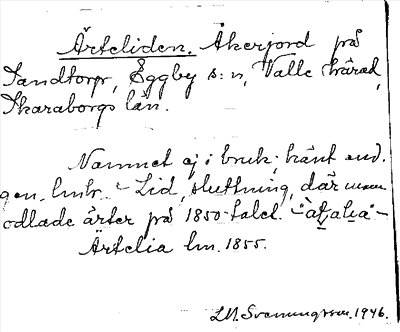 Ärteliden. Åkerjord på
Sandtorp, Eggby s:n, Valle härad,
Skaraborgs län.
Namnet ej i bruk; känt end.
gen. lmhr. - Lid, sluttning, där man
odlade ärter på 1850-talet.
Ärtelia lm. 1855.
L.M. Svenungsson. 1946.